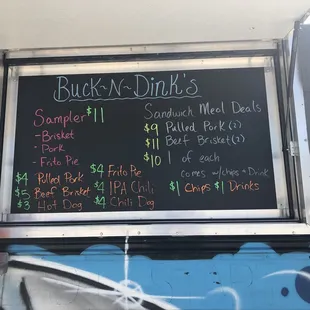 Buck~N~Dink's
Sampler $11
- Brisket
- Pork
- Frito Pie
$4 Pulled Pork
$5 Beef Brisket
$3 Hot Dog
$4 Frito Pie
$4 IPA Chili
$4 Chili Dog
Sandwich Meal Deals
$9 Pulled Pork (2)
$11 Beef Brisket (2)
$10 1 of each
comes w/chips + Drink
$1 Chips $1 Drinks